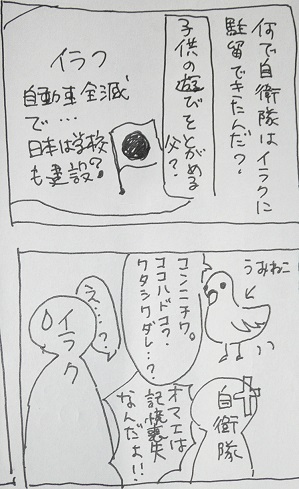 何で自衛隊はイラクに
駐留できたんだ？
子供の遊びをとがめる
父？
イラク
自動車全滅
で…
日本は学校
も建設？
うみねこ
コンニチワ。
ココハドコ？
ワタシワダレ…？
え…？
イラク
オマエは
記憶喪失
なんだよ!!
自衛隊